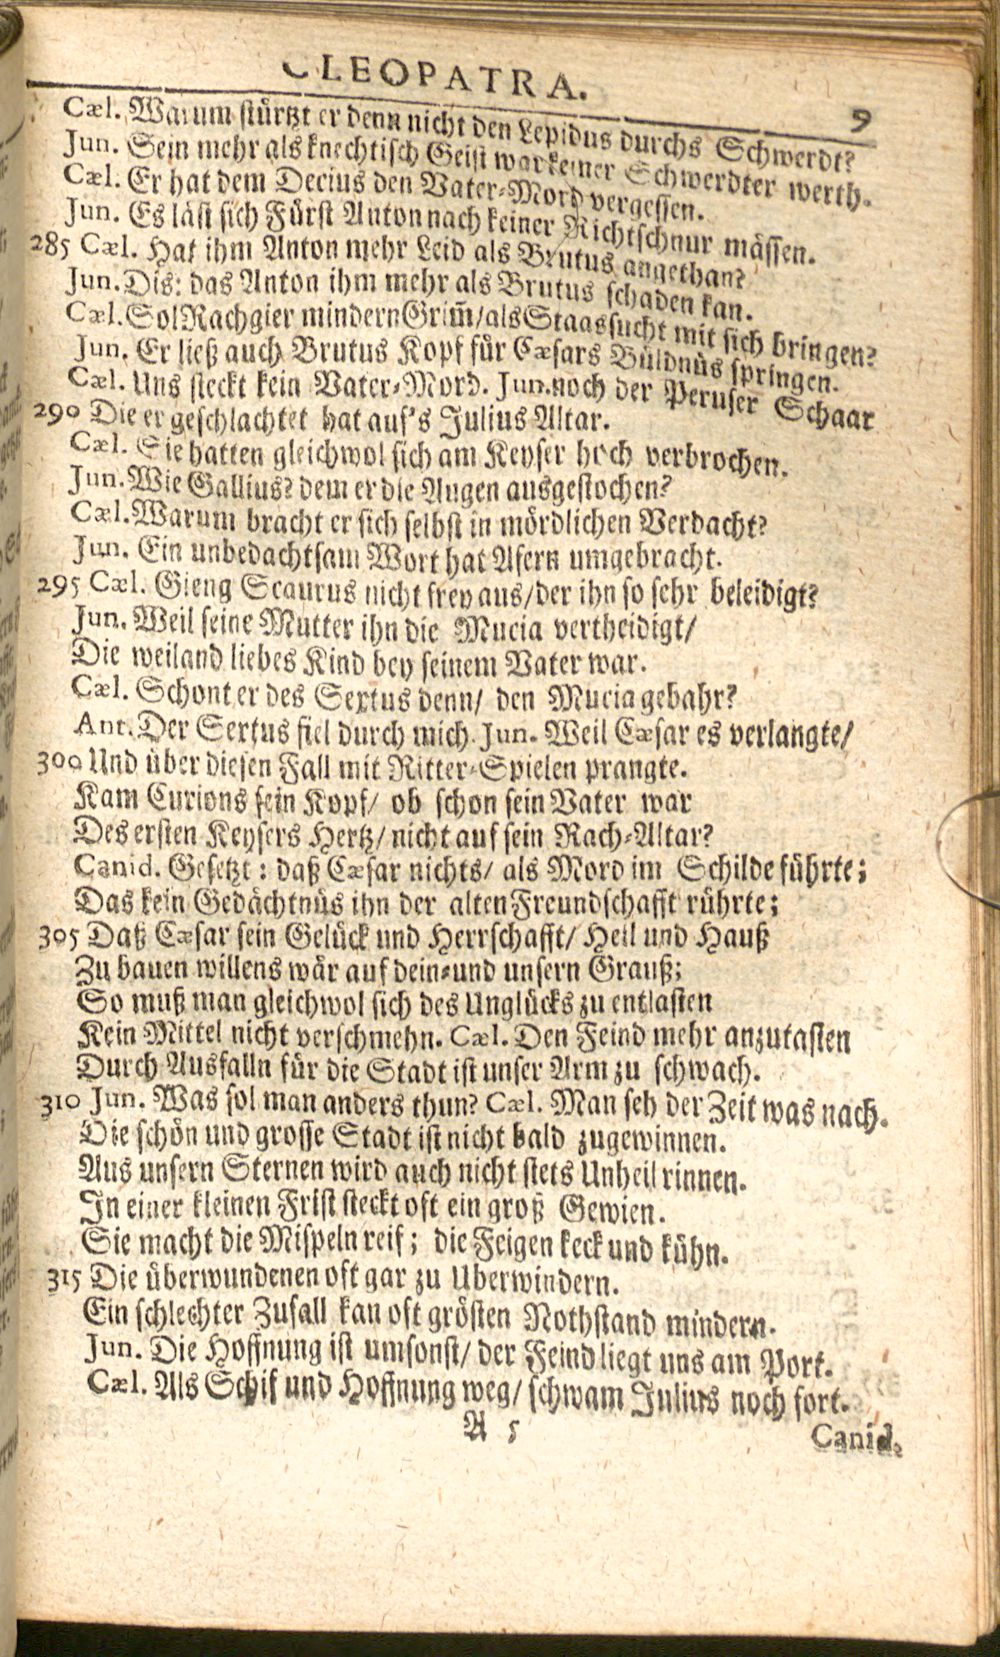 CLEOPATRA. 9
Cæl. Warum stürtzt er denn nicht den Lepidus durchs Schwerdt?
Jun. Sein mehr als knechtisch Geist war keiner Schwerdter werth.
Cæl. Er hat dem Decius den Vater-Mord vergessen.
Jun. Es läst sich Fürst Anton nach keiner Richtschnur mässen.
285 Cæl. Hat ihm Anton mehr Leid als Brutus angethan?
Jun. Dis: das Anton ihm mehr als Brutus schaden kan.
Cæl. Sol Rachgier mindern Grim̃/ als Staassucht mit sich bringen?
Jun. Er ließ auch Brutus Kopf für Cæsars Büldnüs springen.
Cæl. Uns steckt kein Vater-Mord. Jun. noch der Peruser Schaar
290 Die er geschlachtet hat auf's Julius Altar.
Cæl. Sie hatten gleichwol sich am Keyser hoch verbrochen.
Jun. Wie Gallius? dem er die Augen ausgestochen?
Cæl. Warum bracht er sich selbst in mördlichen Verdacht?
Jun. Ein unbedachtsam Wort hat Afern umgebracht.
295 Cæl. Gieng Scaurus nicht frey aus/ der ihn so sehr beleidigt?
Jun. Weil seine Mutter ihn die Mucia vertheidigt/
Die weiland liebes Kind bey seinem Vater war.
Cæl. Schont er des Sextus denn/ den Mucia gebahr?
Ant. Der Sextus fiel durch mich. Jun. Weil Cæsar es verlangte/
300 Und über diesen Fall mit Ritter-Spielen prangte.
Kam Curions sein Kopf/ ob schon sein Vater war
Des ersten Keysers Hertz/ nicht auf sein Rach-Altar?
Canid. Gesetzt: daß Cæsar nichts/ als Mord im Schilde führte;
Das kein Gedächtnüs ihn der alten Freundschafft rührte;
305 Daß Cæsar sein Gelück und Herrschafft/ Heil und Hauß
Zu bauen willens wär auf dein-und unsern Grauß;
So muß man gleichwol sich des Unglücks zu entlasten
Kein Mittel nicht verschmehn. Cæl. Den Feind mehr anzutasten
Durch Ausfalln für die Stadt ist unser Arm zu schwach.
310 Jun. Was sol man anders thun? Cæl. Man seh der Zeit was nach.
Die schön und grosse Stadt ist nicht bald zugewinnen.
Aus unsern Sternen wird auch nicht stets Unheil rinnen.
In einer kleinen Frist steckt oft ein groß Gewien.
Sie macht die Mispeln reif; die Feigen keck und kühn.
315 Die überwundenen oft gar zu Uberwindern.
Ein schlechter Zufall kan oft grösten Nothstand mindern.
Jun. Die Hoffnung ist umsonst/ der Feind liegt uns am Port.
Cæl. Als Schif und Hoffnung weg/ schwam Julius noch fort.
A 5
Canid.